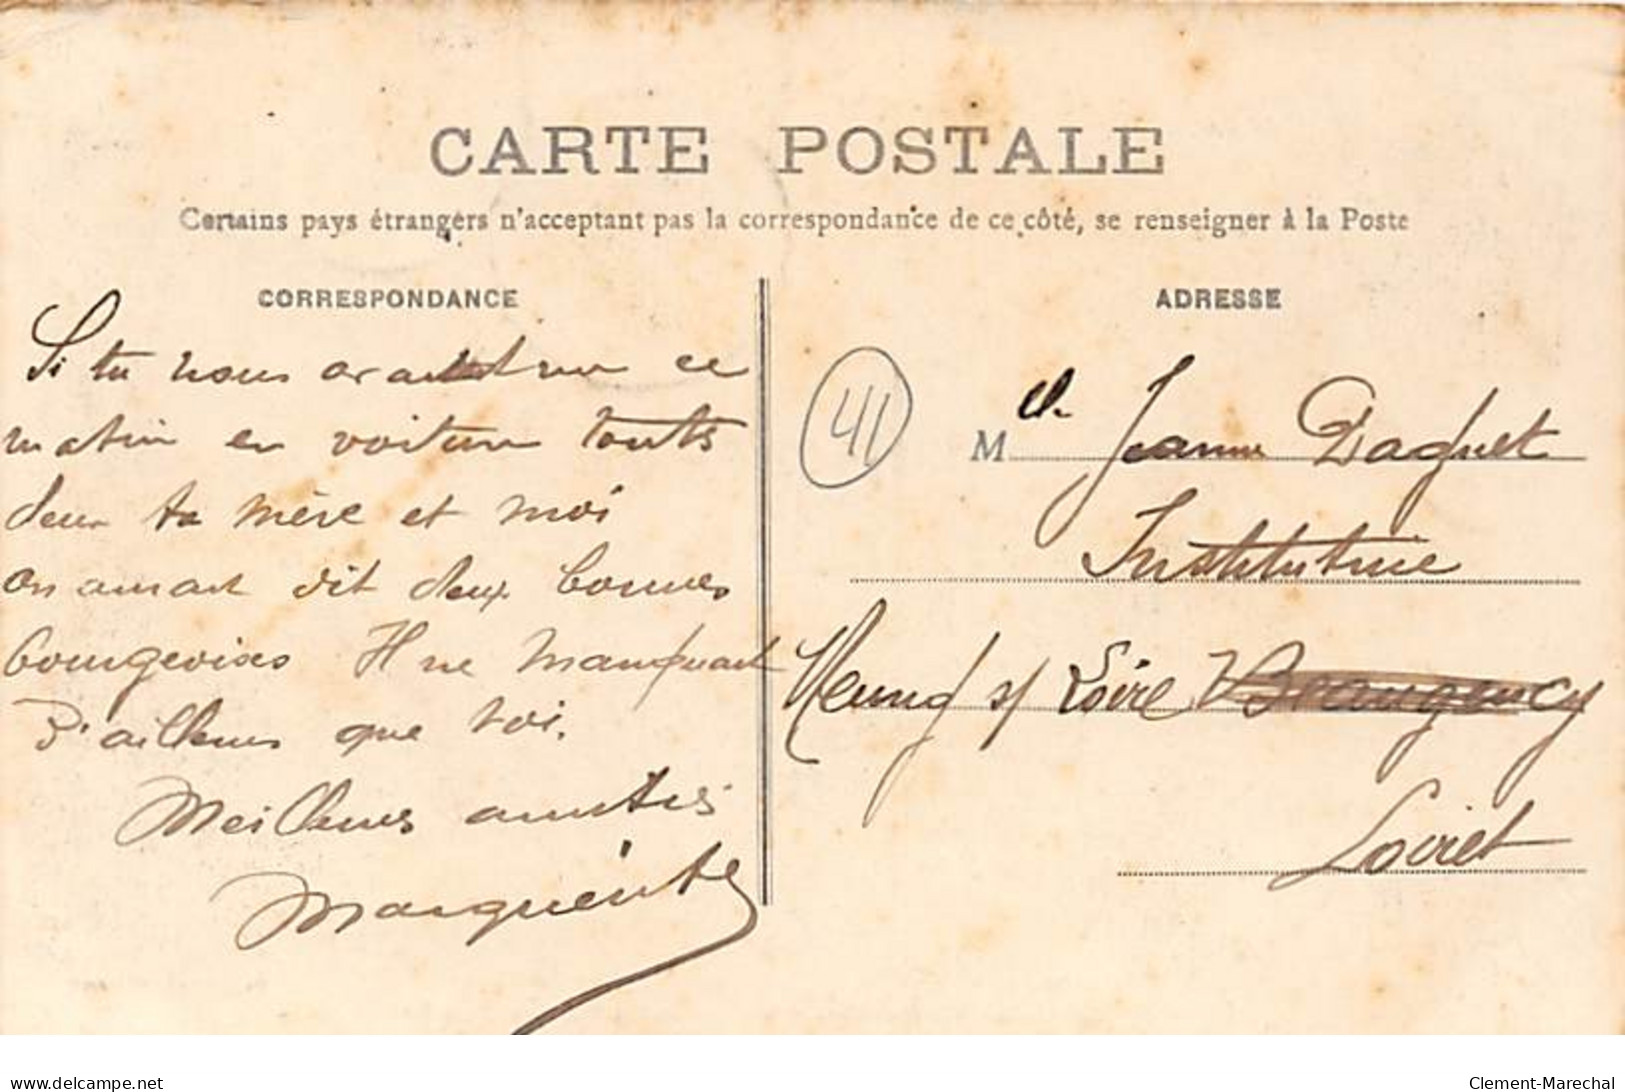 CARTE POSTALE
Certains pays étrangers n'acceptant pas la correspondance de ce côté, se renseigner à la Poste
CORRESPONDANCE
Si tu nous avait vu ce
matin en voiture touts
deux ta mère et moi
on aurait dit deux bonnes
bourgeoises Il ne manquait
d'ailleurs que toi.
Meilleures amitiés
Marguerite
ADRESSE
41
Mlle Jeanne Daquet
Institutrice
Meung s/ Loire Beaugency
Loiret
delcampe.net
Clement-Marechal